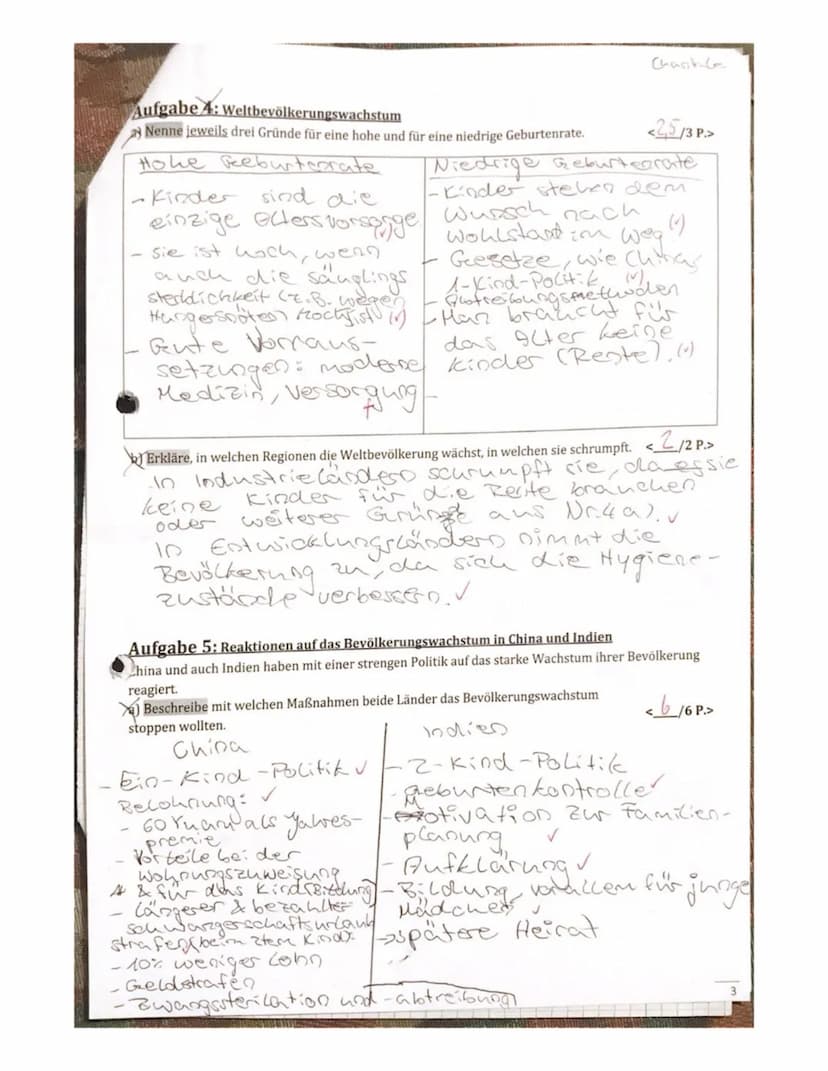 Aufgabe 4: Weltbevölkerungswachstum
a) Nenne jeweils drei Gründe für eine hohe und für eine niedrige Geburtenrate. <2,5/3 P.>
Hohe Geburtenrate
- Kinder sind die
einzige Altersvorsorge (✓)
- sie ist hoch, wenn
auch die säuglings
sterblichkeit (z.B. wegen
Hungersnöten) hoch ist (✓)
- Gute Vorraus-
setzungen: moderne
Medizin, Versorgung
Niedrige Geburtenrate
- Kinder stehen dem
Wunsch nach
Wohlstand im Weg (✓)
- Gesetze, wie Chinas
1-Kind-Politik (✓)
- Abtreibungsmethoden
- Man braucht für
das Alter keine
Kinder (Rente). (✓)
-
b) Erkläre, in welchen Regionen die Weltbevölkerung wächst, in welchen sie schrumpft. <2/2 P.>
In Industrieländern schrumpft sie, da sie
keine Kinder für die Rente brauchen
oder weiterer Gründe aus Nr.4a). ✓
In Entwicklungsländern nimmt die
Bevölkerung zu, da sich die Hygiene-
zustände verbessern. ✓
Aufgabe 5: Reaktionen auf das Bevölkerungswachstum in China und Indien
China und auch Indien haben mit einer strengen Politik auf das starke Wachstum ihrer Bevölkerung
reagiert.
a) Beschreibe mit welchen Maßnahmen beide Länder das Bevölkerungswachstum
stoppen wollten. <6/6 P.>
China
- Ein-Kind-Politik ✓
Belohnung: ✓
- 60 Yuan als Jahres-
premie
- Vorteile bei der
Wohnungszuweisung
& für das Kind (Bildung)
- längerer & bezahlter
schwangerschaftsurlaub
strafen (beim 2tem Kind):
- 10% weniger Lohn
- Geldstrafen
- Zwangssterilation und -abtreibung
Indien
- 2-Kind-Politik
- Geburtenkontrolle ✓
- Motivation zur Familien-
planung ✓
- Aufklärung ✓
- Bildung, vor allem für junge
Mädchen ✓
→ spätere Heirat
3